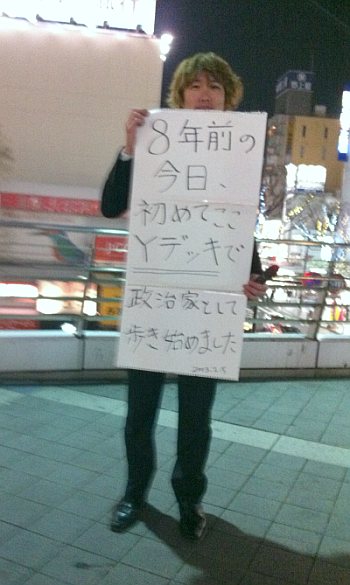 8年前の
今日、
初めてここ
Yデッキで
政治家として
歩き始めました